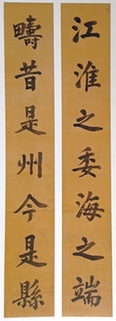 江淮之委海之端
疇昔是州今是縣